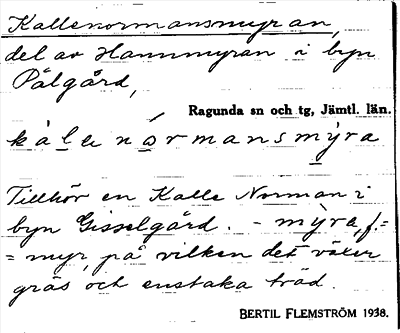 Kallenormansmyran,
del av Hammmyran i byn
Pålgård,
Ragunda sn och tg, Jämtl. län.
kàlenórmansmýra
Tillhör en Kalle Norman i
byn Gisselgård. – mỳra, f. =
= myr, på vilken det växer
gräs och enstaka träd.
BERTIL FLEMSTRÖM 1938.